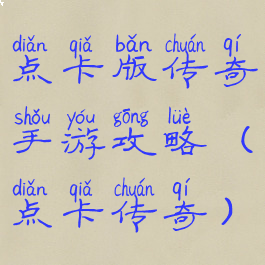 diǎn qiǎ bǎn chuán qí
点卡版传奇
shǒu yóu gōng lüè
手游攻略（
diǎn qiǎ chuán qí
点卡传奇）